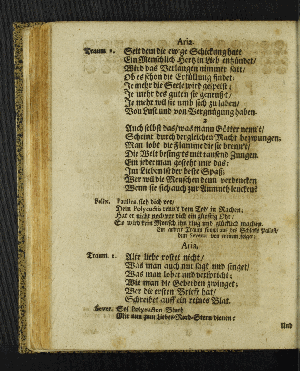 Aria.
Traum 1. Seit dem die ew'ge Schickung hatt
Ein Menschlich Hertz in Lieb entzündet/
Wird das Verlangen nimmer satt/
Ob es schon die Erfüllung findet.
Je mehr die Seele wird gespeist;
Je mehr des guten sie geneust;
Je mehr wil sie umb sich zu laben/
Von Lust und von Vergnügung haben.
2
Auch selbst das/was mann Götter nennt/
Scheint durch dergleichen Macht bezwungen.
Man lobt die Flamme die sie brennt/
Die Welt besingt es mit tausend Zungen.
Ein jeder man gesteht nur das:
Im Lieben ist der beste Spaß;
Wer wil die Menschen denn verdencken
Wenn sie sich auch zur Anmuth lencken?
Felix. Paullus sieh dich vor/
Dem Polyeuctus träut dem Tod/ in Rachen,
Hat er nicht noch vor dich ein günstig Ohr;
So wird kein Mensch ihn klug und glücklich machen.
Aria.
Traum. 1. Alte liebe rostet nicht/
Was man auch nur sagt und singet/
Was man lobet und verspricht;
Wie man die Geberden zwinget;
Wer die ersten Briefe hat/
Schreibet auff ein reines Blat.
Sever. Sol Polyeuctens Blut/
Mir nun zum Liebes-Nord-Stern dienen:
Und